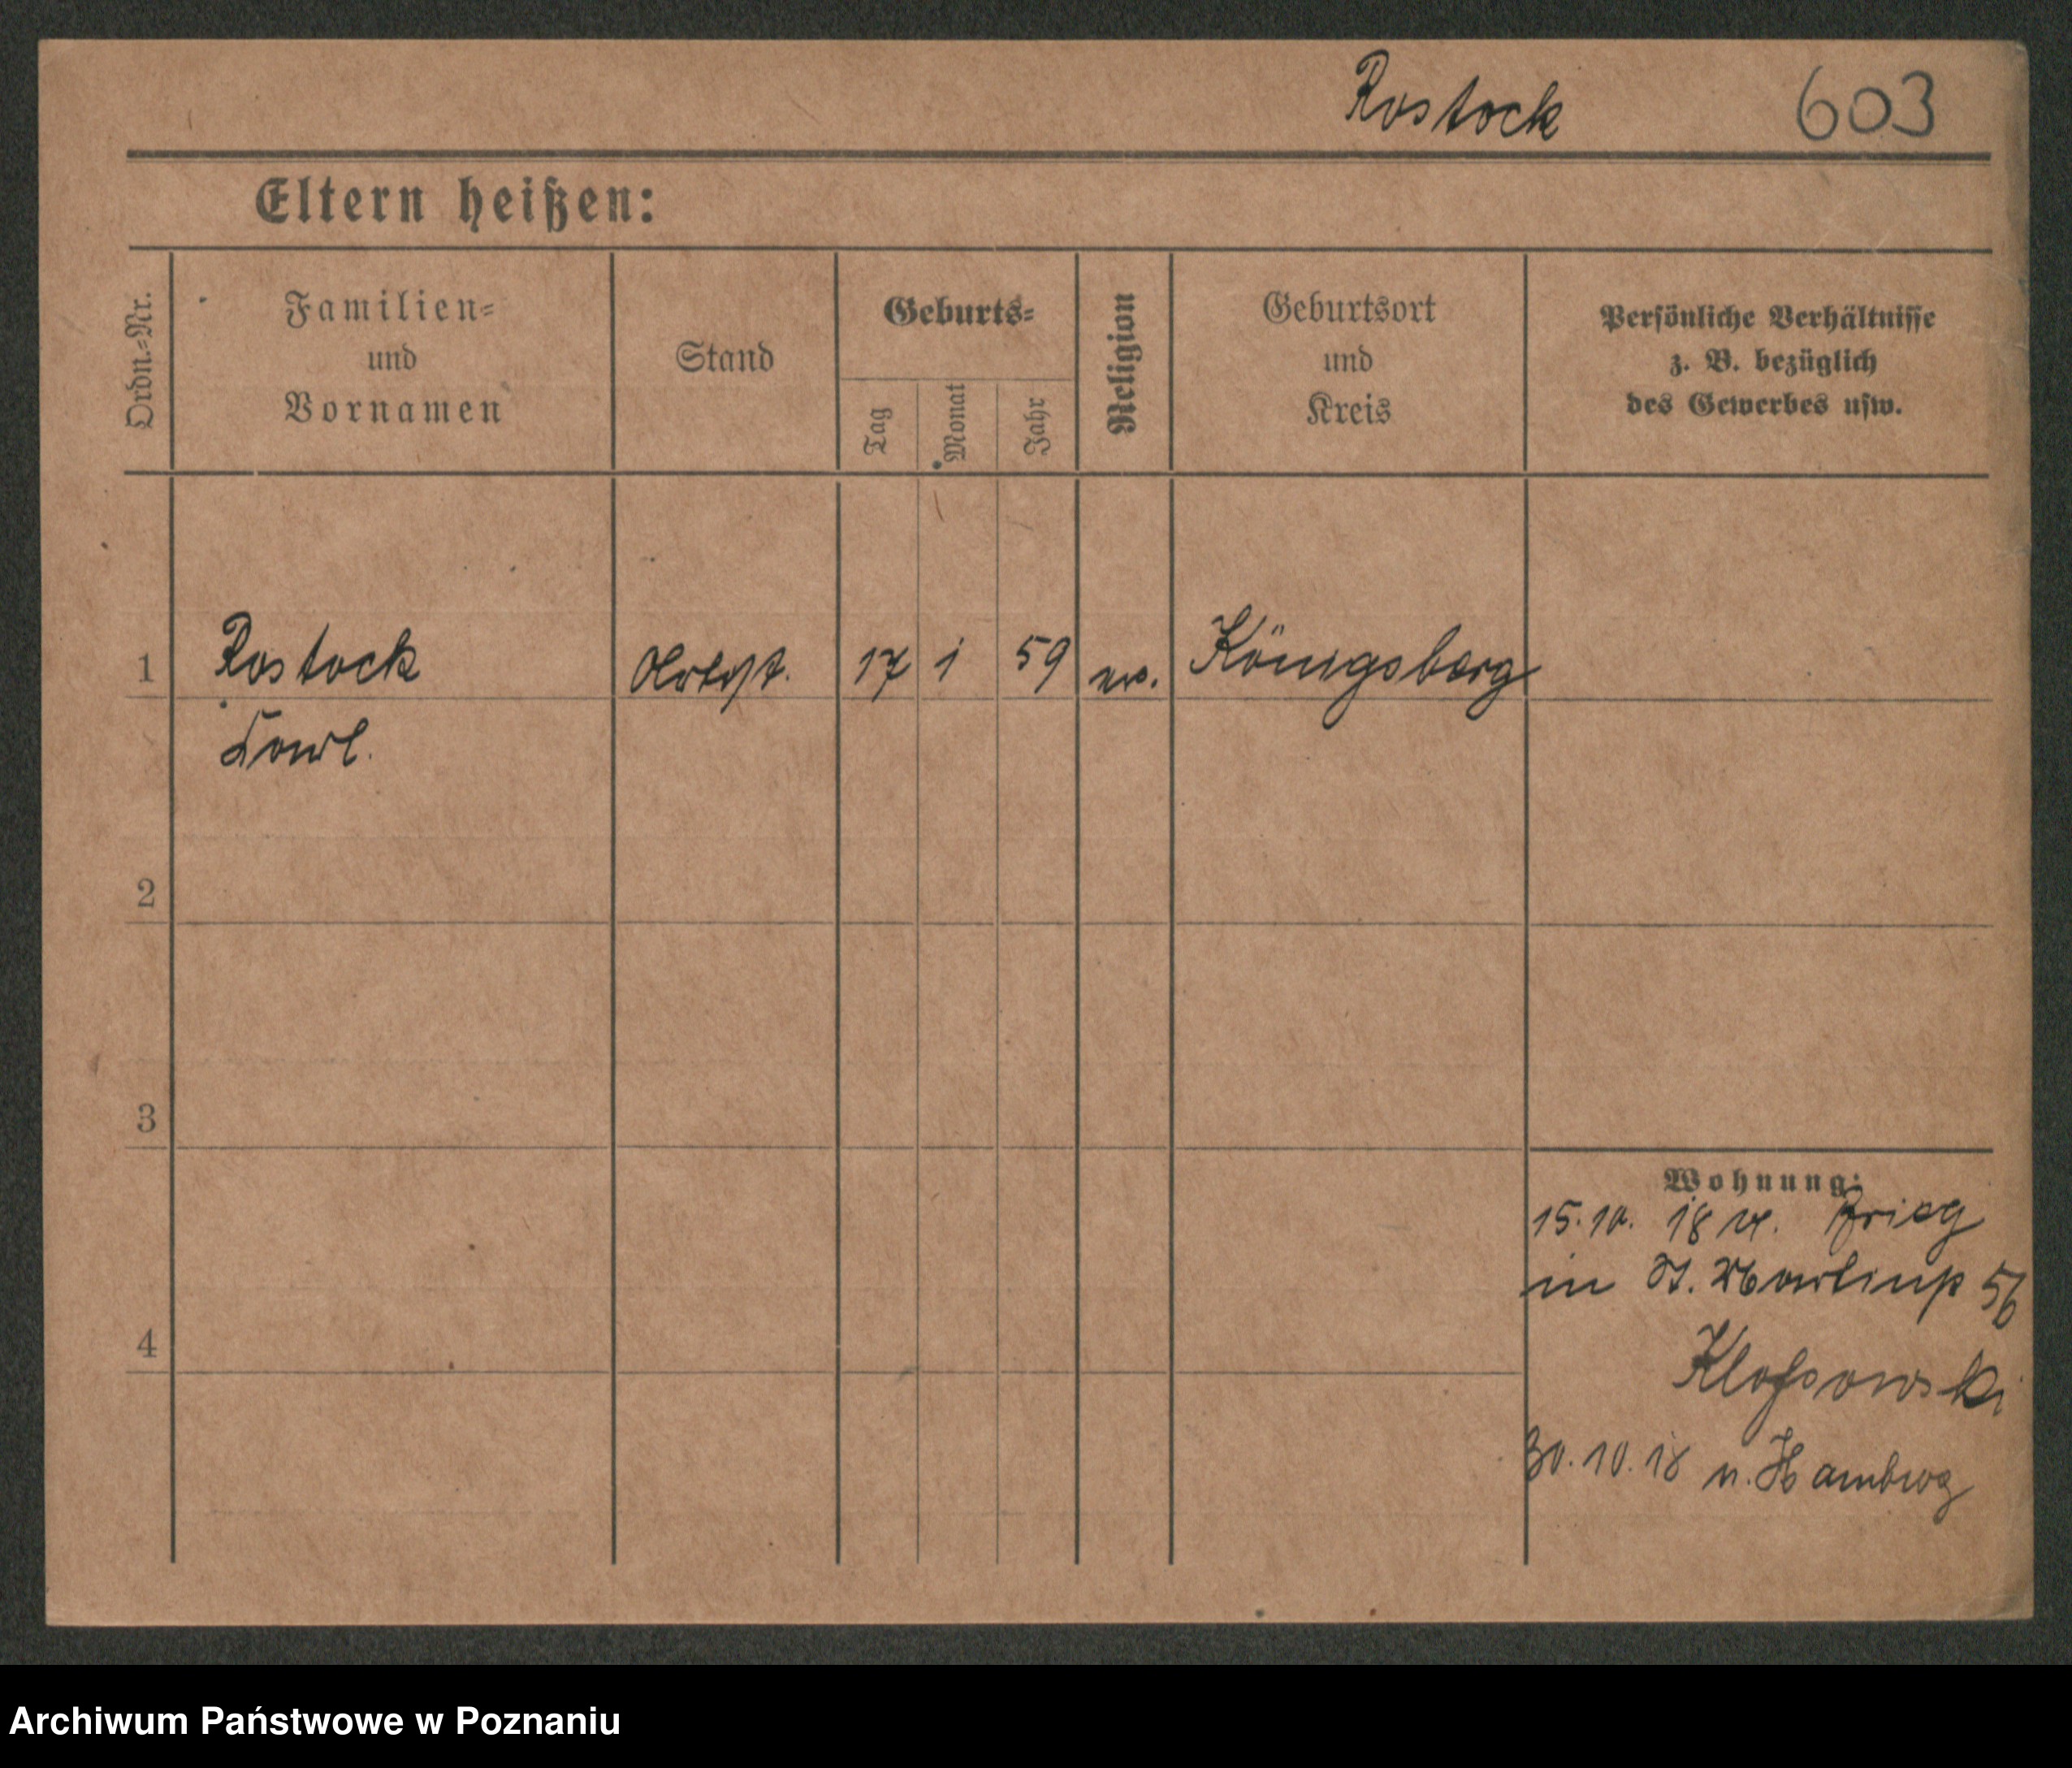 Rostock 603
Eltern heißen:
Ordn.=Nr.
Familien=
und
Vornamen
Stand
Geburts=
Tag
Monat
Jahr
Religion
Geburtsort
und
Kreis
Persönliche Verhältnisse
z. B. bezüglich
des Gewerbes usw.
1 Rostock 17 1 59 ev. Königsberg
Karl.
2
3
4
Wohnung:
15.10. 18 v. Brieg
in St. Martinstr 56
Klossowski
30.10.18 n. Hamburg
Archiwum Państwowe w Poznaniu